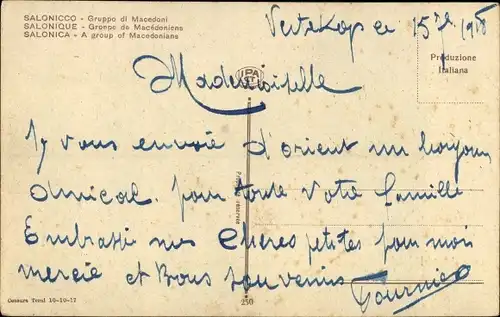 SALONICCO - Gruppo di Macedoni
SALONIQUE - Groupe de Macédoniens
SALONICA - A group of Macedonians
Vertekop le 15 1918
Produzione
Italiana
IPA
CT
Mademoiselle
Je vous envoie d'orient un bonjour
Amical. pour toute votre famille
Embrassé nos Chères petites pour moi
mercie et Bons Souvenirs
Fournier
Censura Tend 10-10-17
250